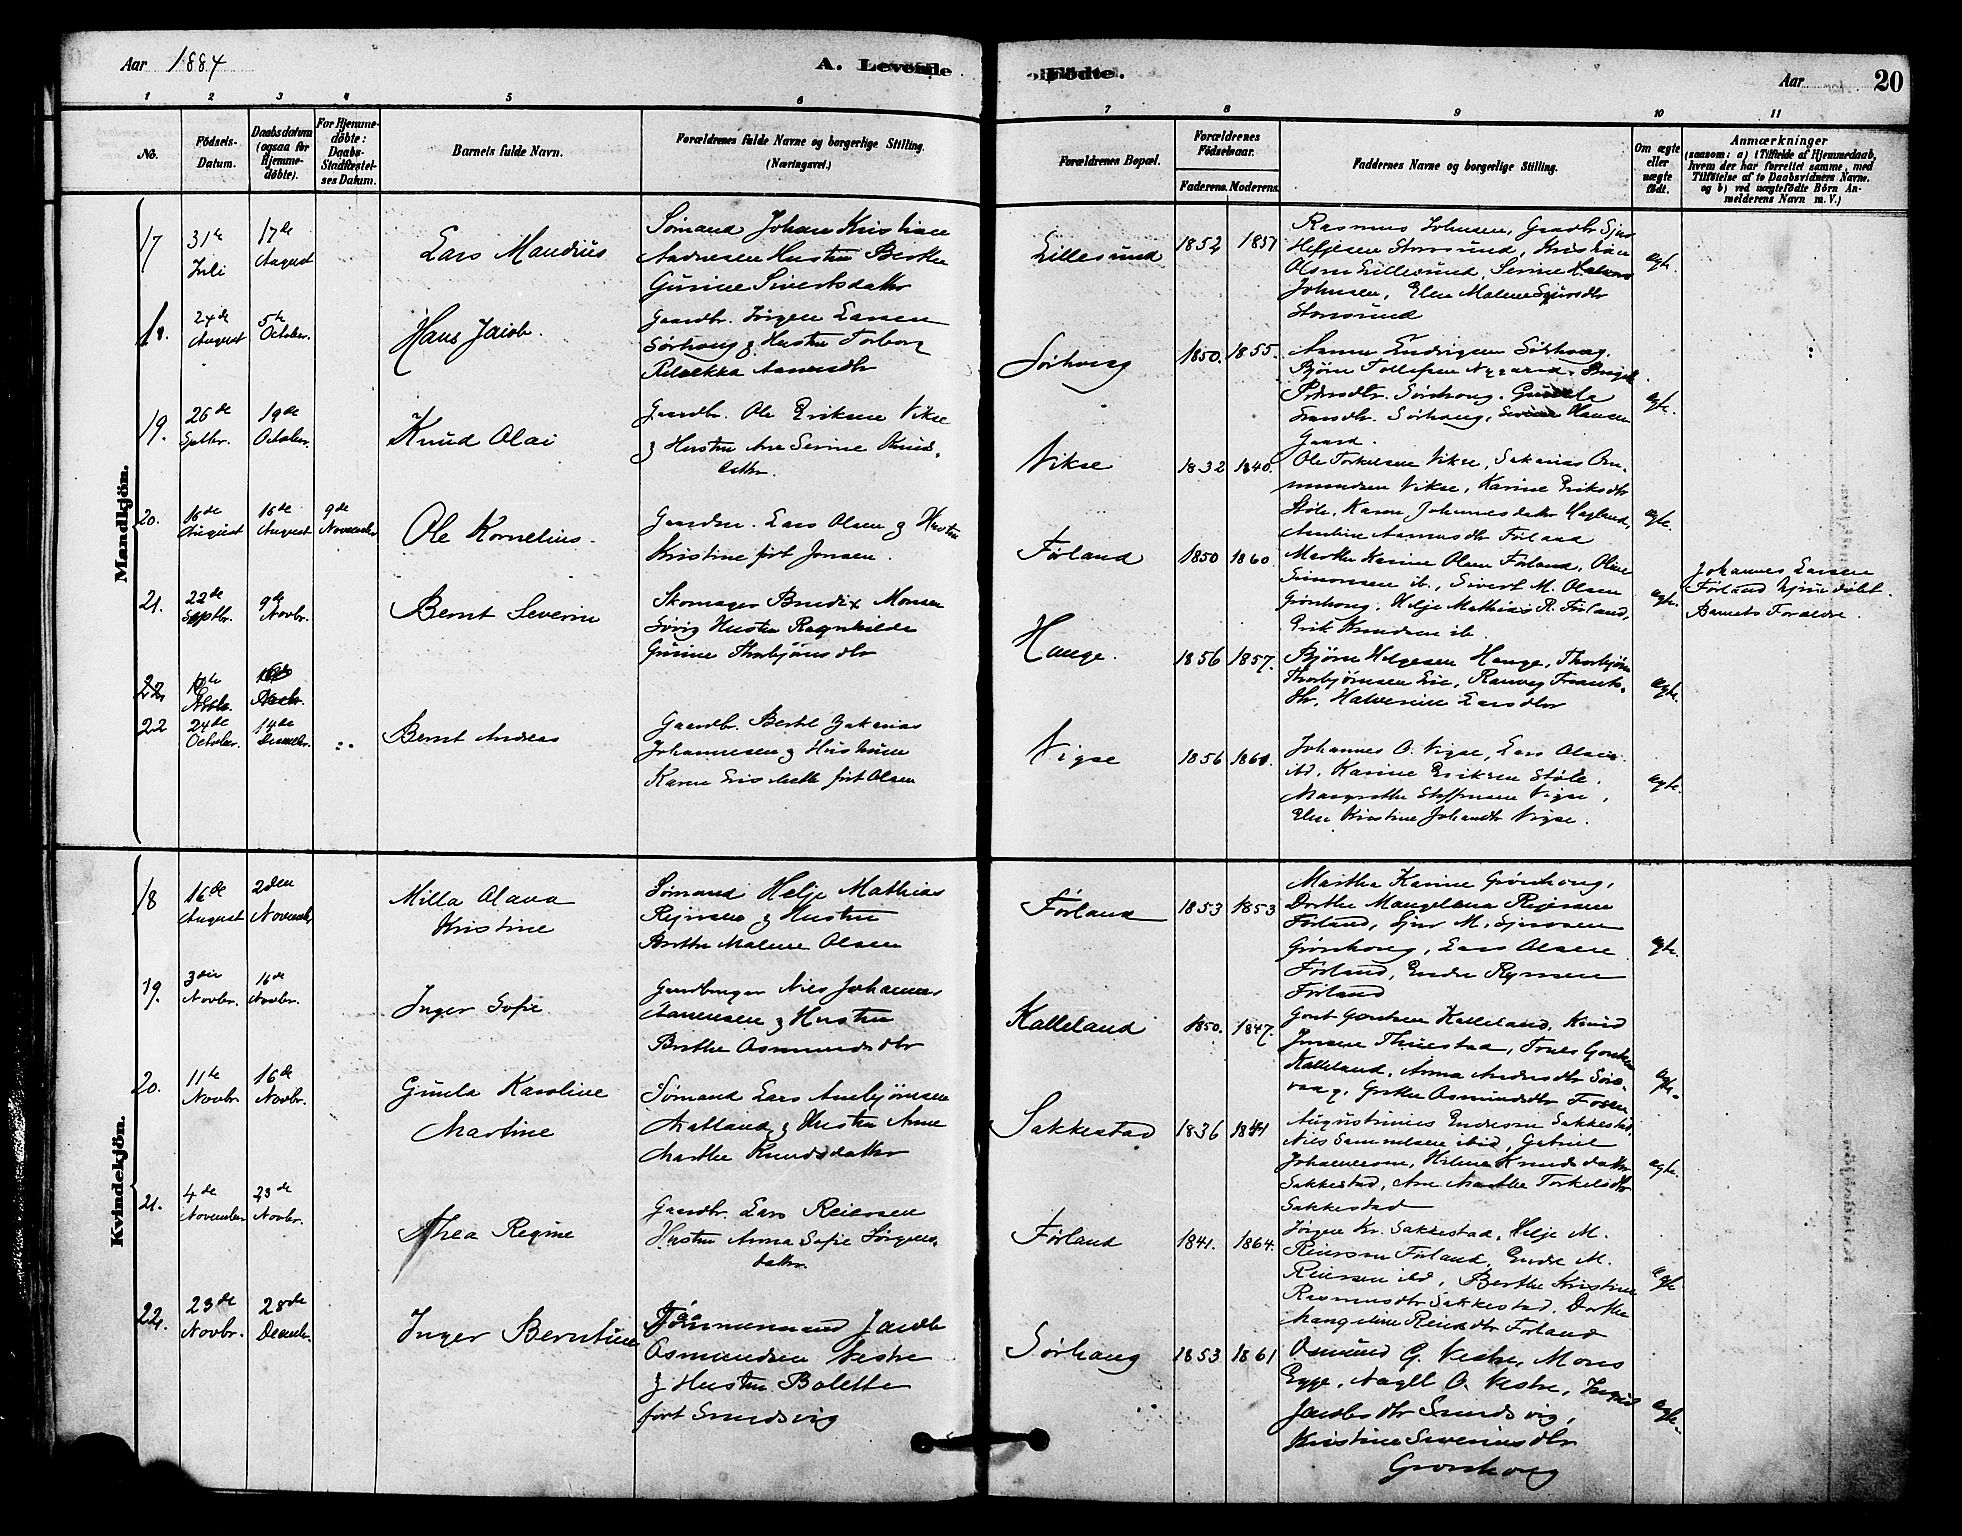 Aar 1884
A. Levende
Fødte.
Aar
20
1 2 3 4 5 6 7 8 9 10 11
No.
Fødsels-
Datum.
Daabsdatum
(ogsaa for
Hjemme-
døbte).
For Hjemme-
døbte:
Daabs-
Stadfæstel-
ses Datum.
Barnets fulde Navn.
Forældrenes fulde Navne og borgerlige Stilling.
(Næringsvei.)
Forældrenes Bopæl.
Forældrenes
Fødselsaar.
Faderens. Moderens.
Faddernes Navne og borgerlige Stilling.
Om ægte
eller
uægte
født.
Anmærkninger
(saasom: a) i Tilfælde af Hjemmedaab,
hvem der har forrettet samme, med
Tilføielse af to Daabsvidners Navne.
og b) ved uægtefødte Børn An-
melderens Navn m. V.)
Mandkjön.
17
31te
Juli
17de
August
Lars Maudius
Sømand Johan Kristian
Andresen Hustru Berthe
Gurine Sivertsdatter
Lillesund
1852 1857
Rasmus Johnsen, Gaardbr. Sjur
Helgesen Storesund, Kristian
Olsen Lillesund, Serine
Johnsen, Elen Malene Sjursdtr
Storesund
ægte.
18.
24de
August
5te
October.
Hans Jacob.
Gaardbr. Jørgen Larsen
Sørhoug & Hustru Torborg
Rebekka
Sørhoug
1850. 1855.
Sørhoug.
Bjørn Tollefsen Nygaard,
Sørhoug.
Sørhoug, Hansen
Gaard.
ægte.
19.
26de
Septbr.
19de
October.
Knud Olai
Gaardbr. Ole Eriksen Vikse
& Hustru Ane Serine Knuds-
datter.
Vikse
1832 1840.
Ole Torkelsen Vikse, Sakarias Om-
mundsen Vikse, Karine Eriksdtr
Støle, Karen Johannesdatter Hagland,
Førland
ægte.
20.
16de
August
16de
August
9de
November
Ole Kornelius.
Gaardbr. Lars Olsen & Hustru
Kristine født Jonsen.
Førland
1850 1860
Marthe Karine Olsen Førland, Oline
Simonsen ib., Sivert M. Olsen
Grønhoug, Helje Mathias R. Førland,
Erik Knudsen ib.
ægte.
Johannes Larsen
Førland hjemdøbt.
Barnets Forældre.
21.
22de
Septbr.
9de
Novbr.
Bernt Severin
Skomager Bendix Monsen
Søvig Hustru Ragnhilde
Gurine Thorbjørnsdtr
Hauge.
1856 1857.
Bjørn Helgesen Hauge, Thorbjørn
Thorbjørnsen Eie, Ranveg
dtr, Halverine Larsdtr
ægte.
22
22
24de
October.
14de
Decembr.
Bernt Andreas
Gaardbr. Bertel Zakarias
Johannesen & Hustruen
Karen Lisabeth født Olsen
Vigse
1856 1860.
Johannes O. Vigse, Lars Olsen
ibd, Karine Eriksen Støle,
Margrethe Steffensen Vigse,
Elen Kristine Johansdtr Vigse.
ægte.
Kvindekjön.
18
16de
August
2den
Novembr.
Milla Olava
Kristine
Sømand Helje Mathias
Rejersen & Hustru
Berthe Malene Olsen
Førland
1853 1853
Marthe Karine Grønhoug,
Dorthe Mangeléna Rejersen
Førland, Sjur M. Sjursen
Grønhoug, Lars Olsen
Førland, Endre Rejersen
Førland
ægte.
19.
3die
Novbr.
16de
Novbr.
Inger Sofie
Gaardbruger Nils Johannes
Aanensen & Hustru
Berthe Osmundsdtr
Kalleland
1850. 1847.
Kalleland, Knud
Jensen Thuestad,
Kalleland, Anna Andersdtr
Grethe Osmundsdtr
ægte.
20.
11te
Novbr.
16de
Novbr.
Gunla Karoline
Martine
Sømand Lars Anbjørnsen
Matland & Hustru Anne
Marthe Knudsdatter
Sakkestad
1836 1841
Augustinus Endresen Sakkestad,
Nils Sammelsen ibid, Gabriel
Johannesen, Helene Knudsdatter
Sakkestad, Ane Marthe Torkelsdtr
Sakkestad
ægte.
21.
4de
November
23de
Novbr.
Thea Regine
Gaardbr. Lars Reiersen
Hustru Anna Sofie Jørgens-
datter.
Førland
1841. 1864.
Jørgen Kr. Sakkestad, Helje M.
Reiersen Førland, Endre M.
Reiersen ibd, Berthe Kristine
Rasmusdtr Sakkestad, Dorthe
Mangeline Reiersdtr Førland
ægte
22.
23de
Novbr.
28de
Decembr.
Inger Berntine
Tømmermand Jacob
Osmundsen Vestre
& Hustru Bolette
født Smedsvig
Sørhaug
1853. 1861
Osmund G. Vestre, Mons
Egge, O. Vestre,
Jacobsdtr Smedsvig,
Kristine Severinsdtr
Grønhoug
ægte.